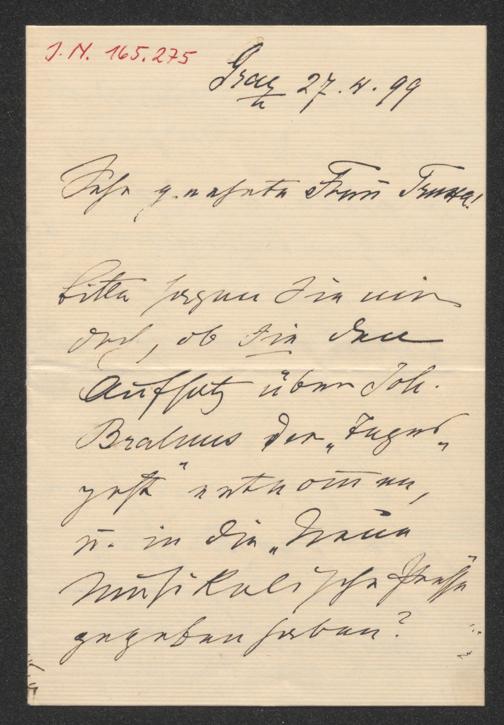 J.N. 165.275
Graz 27.4.99
Sehr geehrte Frau Truxa!
Bitte sagen Sie mir
doch, ob Sie den
Aufsatz über Joh.
Brahms der „
" entnommen,
u. in die „Neue
Musikalische Presse
gegeben haben?